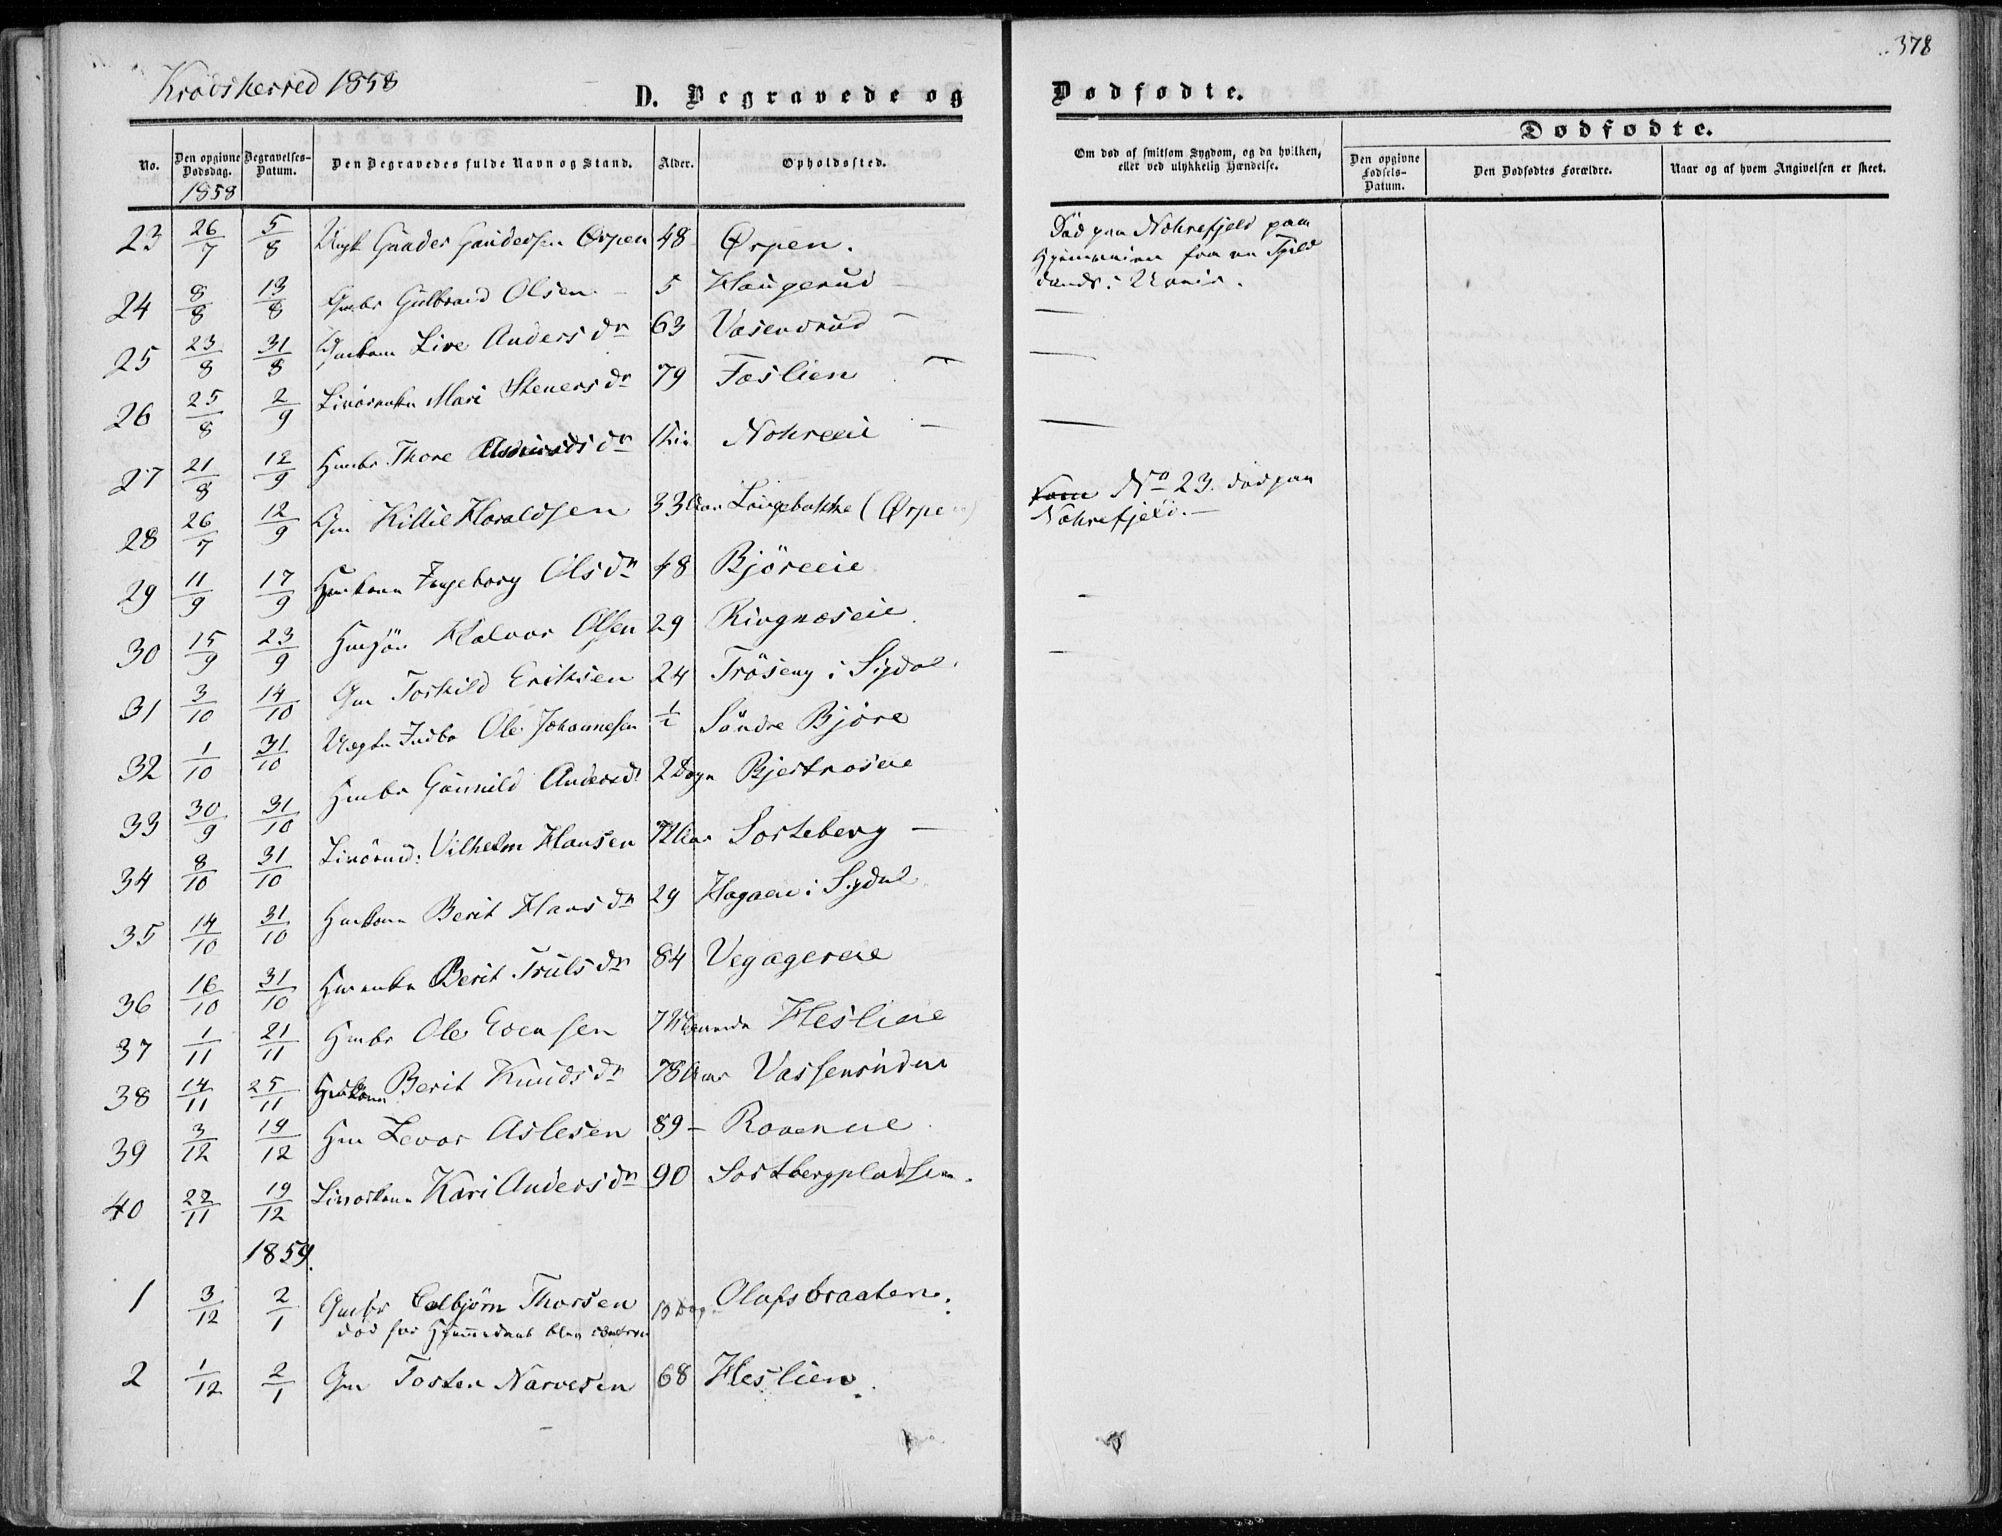 378
Krødsherred 1858
D. Begravede og Dødfødte.
No.
Den opgivne Dødsdag.
Begravelses-Datum.
Den Begravedes fulde Navn og Stand.
Alder.
Opholdssted.
Om død af smitsom Sygdom, og da hvilken, eller ved ulykkelig Hændelse.
Dødfødte.
Den opgivne Fødsels-Datum.
Den Dødfødtes Forældre.
Naar og af hvem Angivelsen er skeet.
1858
23 26/7 5/8 Ungk Gunder Gundersen Ørpen 48 Ørpen. Död paa Nohrefjeld paa
Hjemveien fra en Fjeld
24 8/8 13/8 Gmbr Gulbrand Olsen – 5 Haugerud –
25 23/8 31/8 Live Anders dr 63 Vasendrud –
26 25/8 2/9 Mari Steners dr 79 Foslien –
27 21/8 12/9 Hmbr Thore dr Nohreeie –
28 26/7 12/9 Gm Killil Haraldsen 33 Aar Langebakke (Ørpen) som No 23. död paa
Nohrefjeld. –
29 11/9 17/9 Hmkone Ingeborg Ols dr 48 Björeeie
30 15/9 23/9 Halvor Olsen 29 Ringnæseie.
31 3/10 14/10 Gm Torkild Eriksen 24 Tröseng i Sigdal.
32 1/10 31/10 Ole Johannesen ½ Söndre Björe
33 30/9 31/10 Hmbr Gunnild Andersd 2 Dage Bjertnæseie
34 8/10 31/10 Vilhelm Hansen 72 Aar Sorteberg –
35 14/10 31/10 Hmkone Berit Hans dr 29 Hagaeie i Sigdal
36 16/10 31/10 Hmenke Berit Truls dr 84 Vegagereie
37 1/11 21/11 Hmbr Ole Evensen 7 Maaneder Hesliene
38 14/11 25/11 Hmkone Berit Knuds dr 78 Aar Vassenruden
39 3/12 19/12 Hm Levor Aslesen 89 – Raveneie
40 22/11 19/12 Kari Anders dr 90 Sortbergpladsen.
1859.
1 3/12 2/1 Gmbr Colbjörn Thorsen 10 Dage Olafsbraaten.
död för Hjemmedaab blev
2 1/12 2/1 Gm Tosten Narvesen 68 Heslien.